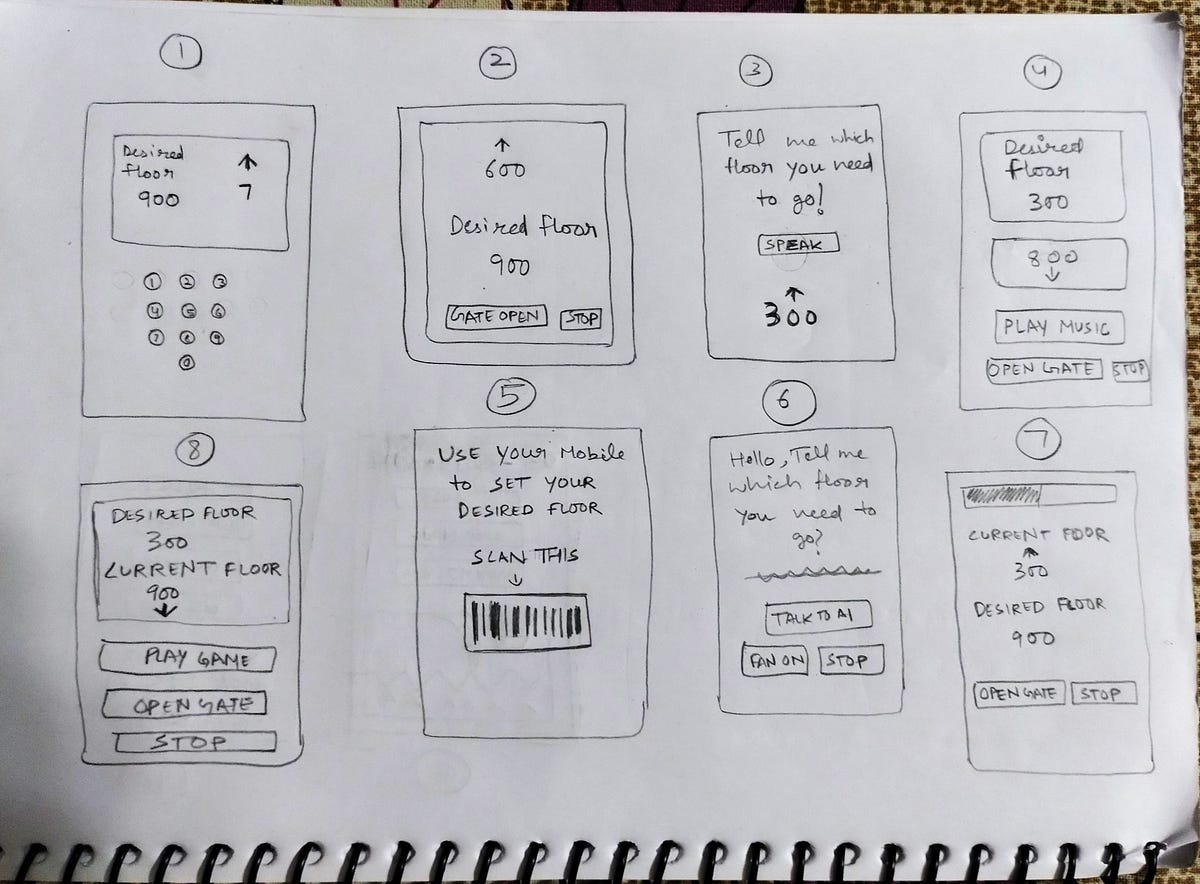 1
Desired
floor
900
↑
7
1 2 3
4 5 6
7 8 9
0
2
↑
600
Desired floor
900
GATE OPEN STOP
3
Tell me which
floor you need
to go!
SPEAK
↑
300
4
Desired
floor
300
800
↓
PLAY MUSIC
OPEN GATE STOP
8
DESIRED FLOOR
300
CURRENT FLOOR
900
↓
PLAY GAME
OPEN GATE
STOP
5
USE YOUR MOBILE
to SET YOUR
DESIRED FLOOR
SCAN THIS
↓
6
Hello, Tell me
which floor
you need to
go?
TALK TO AI
FAN ON STOP
7
CURRENT FLOOR
↑
300
DESIRED FLOOR
900
OPEN GATE STOP